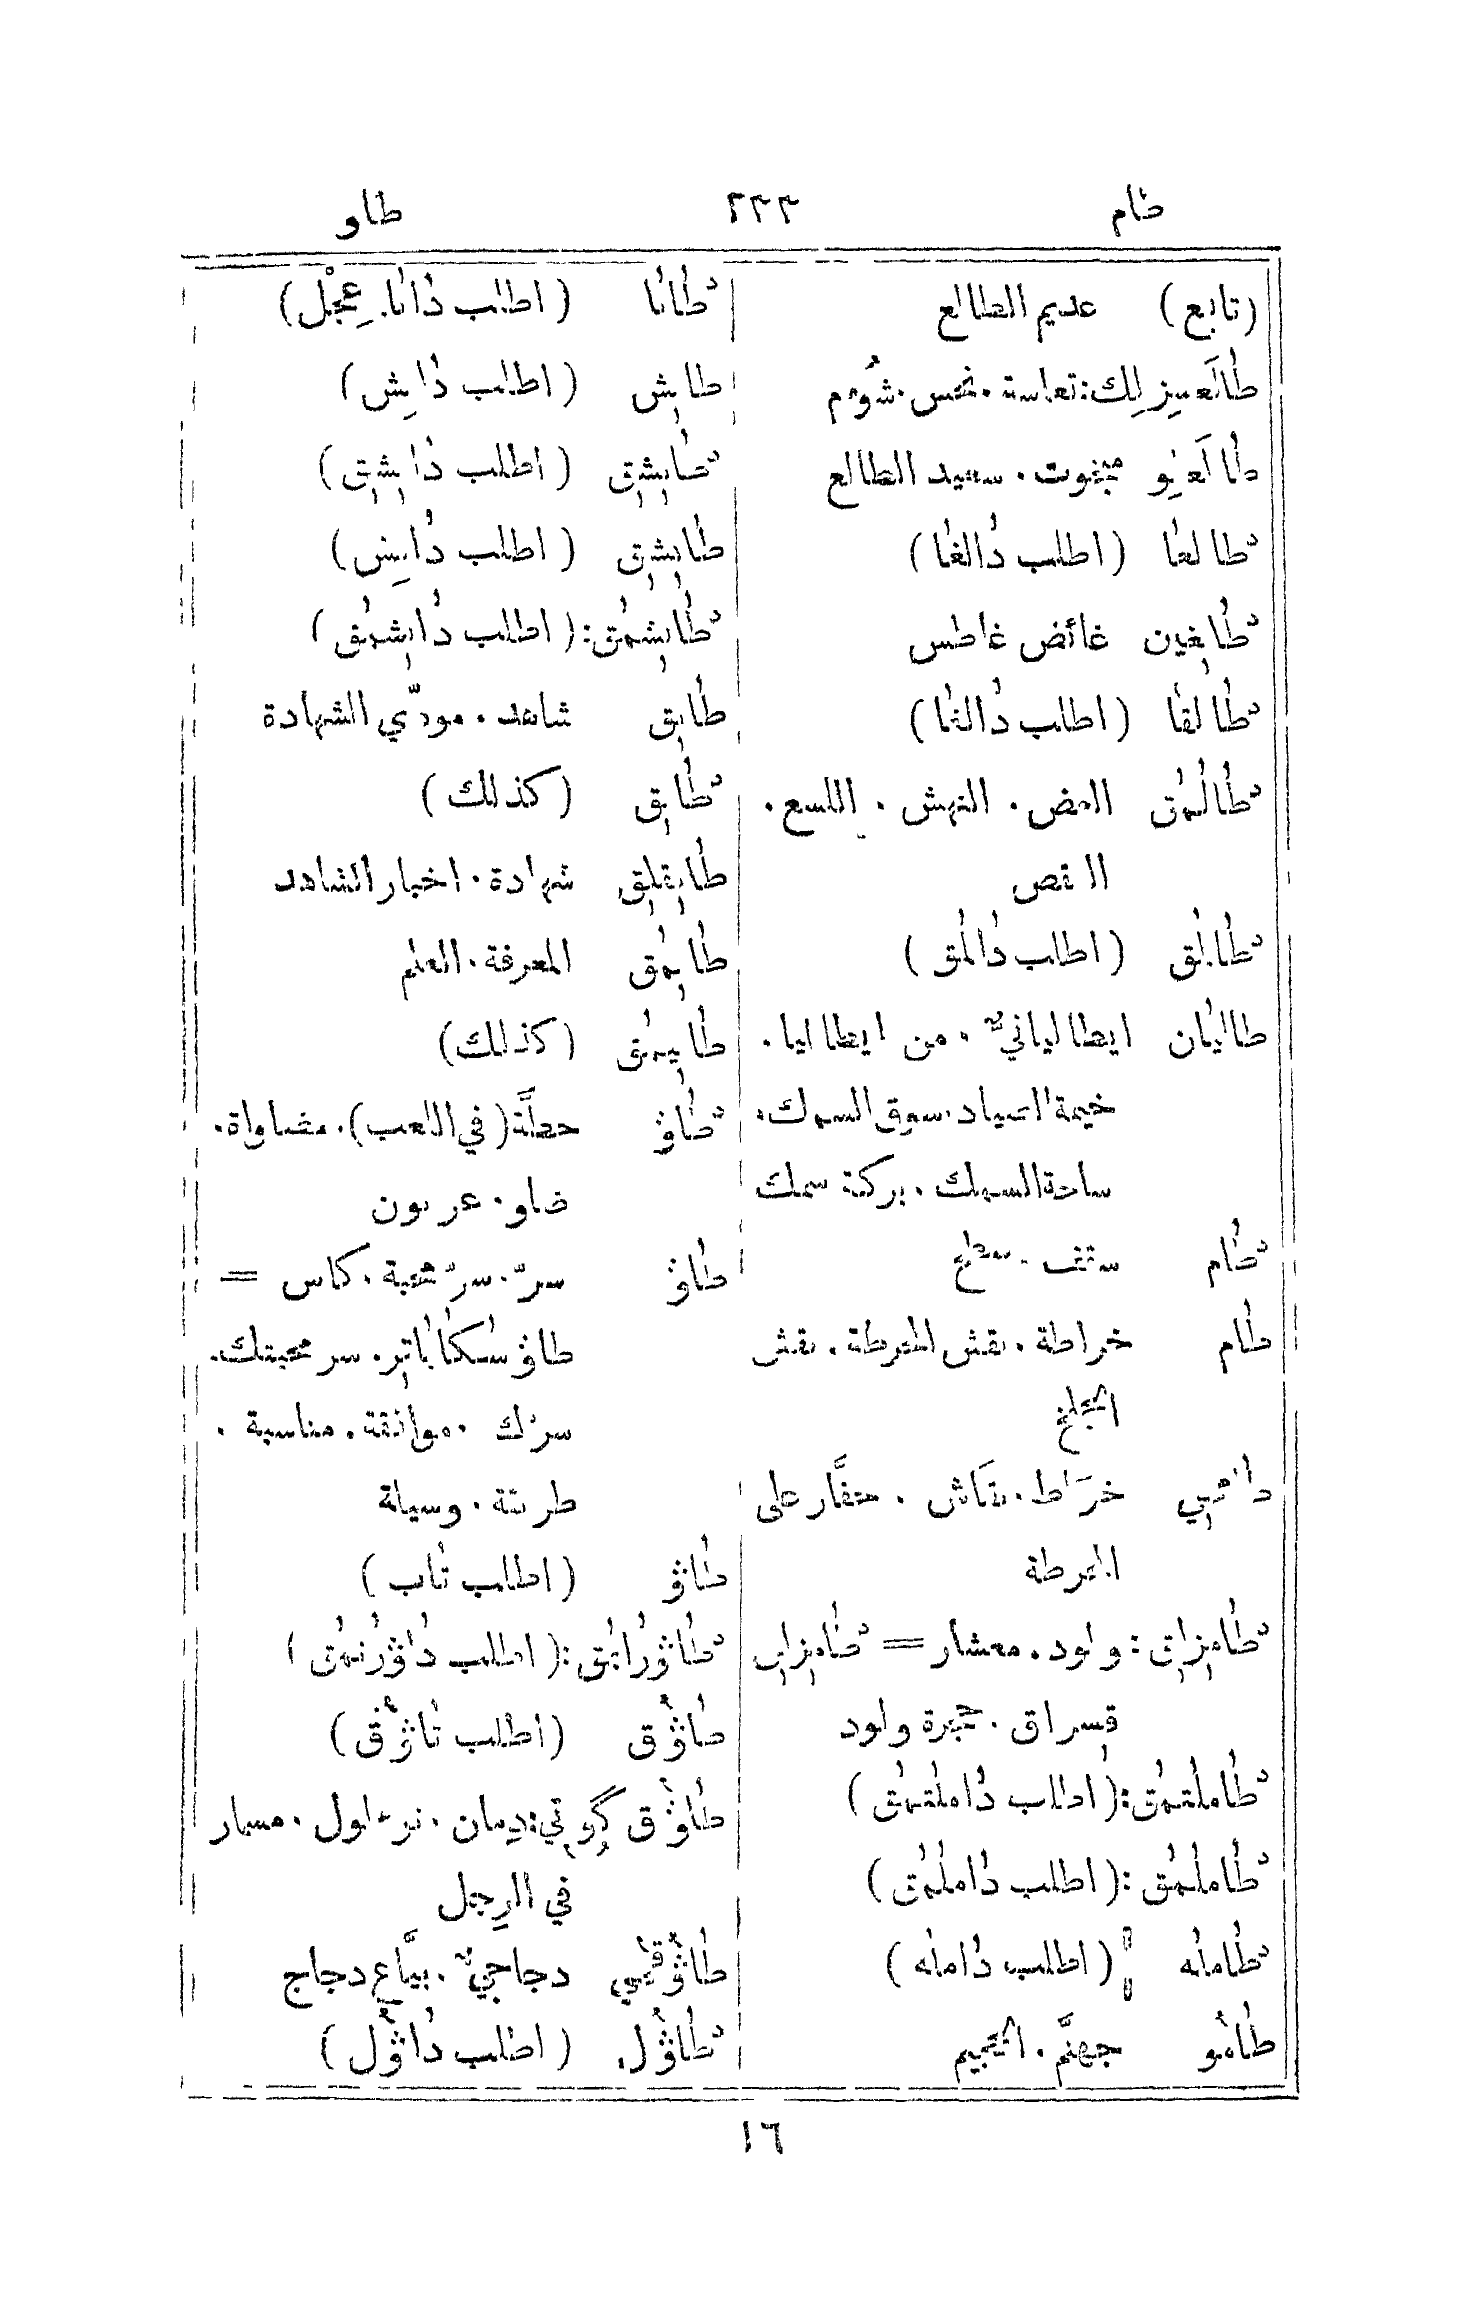 طام ٢٣٣ طاو
(تابع) عديم الطالع
طالَعسِزلِك: تعاسة. نحس. شُؤم
طالَعلِو مبخوت. سعيد الطالع
طالغا (اطلب دالغا)
طالغين غائص غاطس
طالقا (اطلب دالغا)
طالمق العض. النهش. اللسع.
القص
طالمق (اطلب دالمق)
طاليان ايطالياني. من ايطاليا.
خيمة الصياد. سوق السمك.
ساحة السمك. بركة سمك
طام سقف. سطح
طام خراطة. نقش المخرطة. نقش
طامجي خرَّاط. نقَّاش. حفَّار على
المخرطة
طامزلق: ولود. معشار = طامزلق
قسراق. حجرة ولود
طاملتمق: (اطلب داملتمق)
طاملمق: (اطلب داملمق)
طامله (اطلب دامله)
طامو جهنَّم. الجحيم
طانا (اطلب دانا. عِجْل)
طانِش (اطلب دانِش)
طانشق (اطلب دانشق)
طانشق (اطلب دانش)
طانشمق: (اطلب دانشمق)
طانق شاهد. مودّي الشهادة
طانق (كذلك)
طانقلق شهادة. اخبار الشاهد
طانمق المعرفة. العلم
طانيمق (كذلك)
طاوْ حطَّة (في اللعب). مضاواة.
ضاو. عربون
طاوْ سرّ. سرّ محبة. كاس =
سر محبتك.
سرّك. موافقة. مناسبة.
طريقة. وسيلة
طاوْ (اطلب تاب)
طاوْرانمق: (اطلب داوْرنمق)
طاوُق (اطلب تاوُق)
مسمار
في الرِجل
طاوُقجي دجاجيّ. بيَّاع دجاج
طاوُل (اطلب داوُل)
١٦